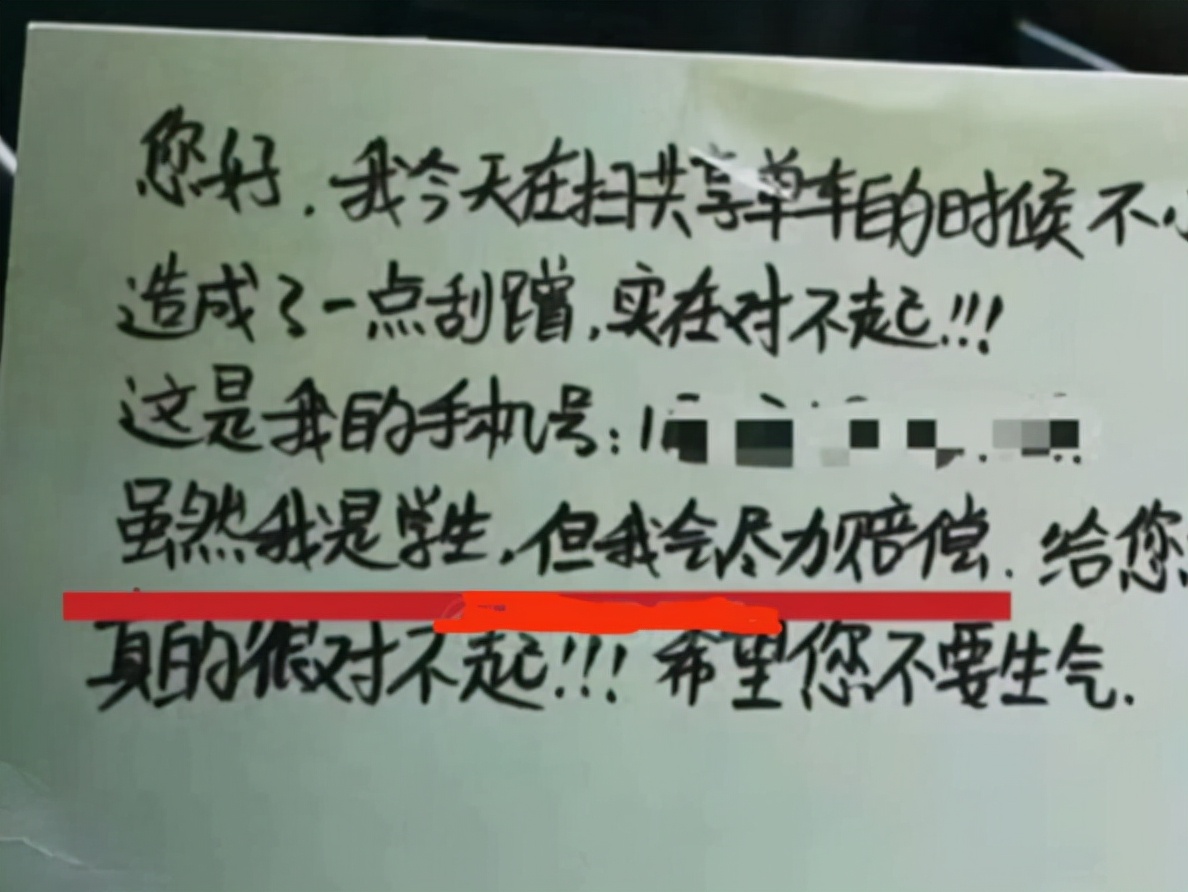 您好，我今天在扫共享单车的时候不
造成了一点刮蹭，实在对不起!!!
这是我的手机号:1
虽然我是学生，但我会尽力赔偿.给您
真的很对不起!!!希望您不要生气.